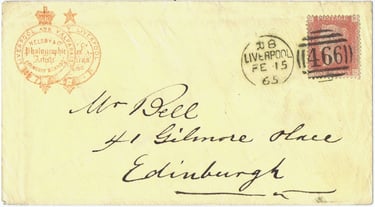 LIVERPOOL
Photographic
Artists
RB
LIVERPOOL
FE 15
65
466
Mr Bell
41 Gilmore Place
Edinburgh